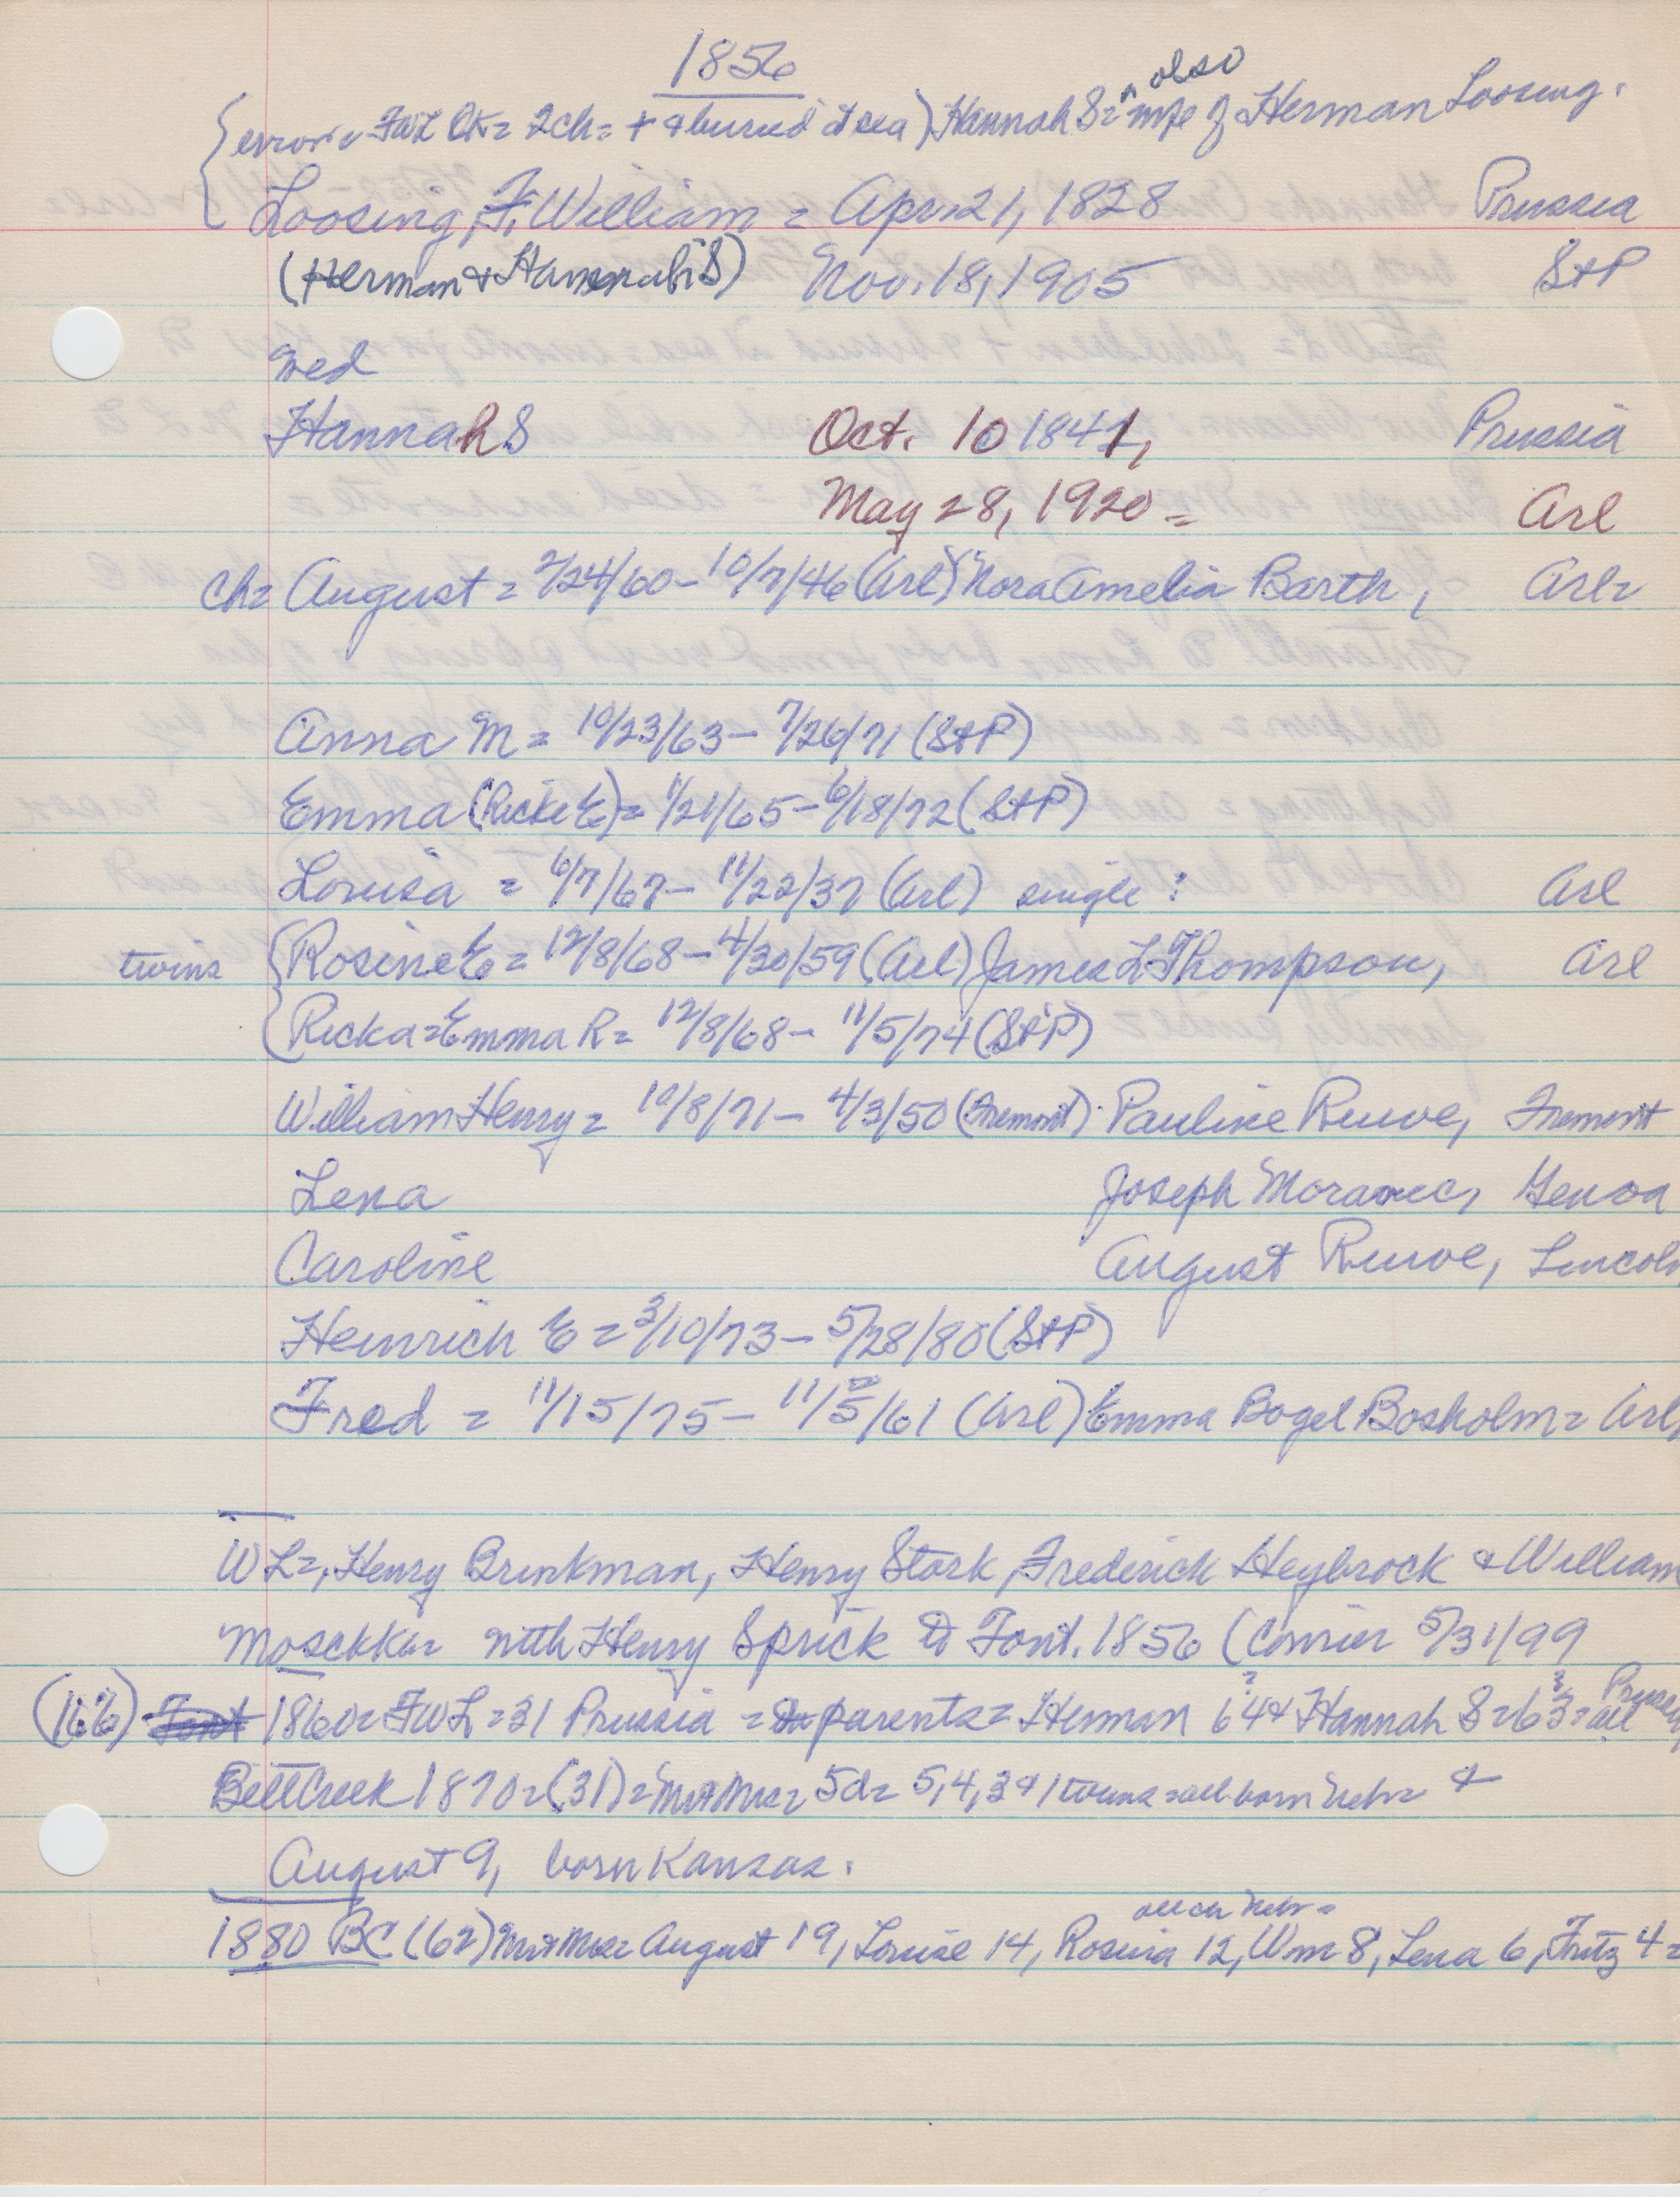 1856
also
{error = FWL OK = 2ch = + & buried at sea) Hannah S = wife of Herman Loosing.
Loosing, F. William = Apr. 21, 1828 Prussia
(Herman & Hannah S) Nov. 18, 1905 StP
wed
Hannah S Oct. 10 1841, Prussia
May 28, 1920 = Arl
ch = August = 2/24/60 - 10/7/46 (Arl) Nora Amelia Barth, Arl =
Anna M = 10/23/63 - 7/26/71 (StP)
Emma (Ricke E) = 1/21/65 - 6/18/72 (StP)
Louisa = 6/7/67 - 11/22/37 (Arl) single : Arl
twins { Rosine E = 12/8/68 - 4/30/59 (Arl) James L Thompson, Arl
Ricka = Emma R = 12/8/68 - 11/5/74 (StP)
William Henry = 10/8/71 - 4/3/50 (Fremont) Pauline Ruwe, Fremont
Lena Joseph Moravec, Genoa
Caroline August Ruwe, Lincoln
Heinrich E = 3/10/73 - 5/28/80 (StP)
Fred = 11/15/75 - 11/5/61 (Arl) Emma Bogel Bosholm = Arl,
WL =, Henry Brinkman, Henry Stork, Frederick Heybrock & William
Moschka = with Henry Sprick to Font. 1856 (Courier 5/31/99
(166) 1860 = FWL = 31 Prussia = parents = Herman 64? & Hannah S = 63? = all Prussia
Bell Creek 1870 = (31) = Mr & Mrs = 5d = 5, 4, 3 & 1 twins = all born Nebr = &
August 9, born Kansas.
all ch Nebr =
1880 BC (62) Mr & Mrs = August 19, Louise 14, Rosina 12, Wm 8, Lena 6, Fritz 4 =